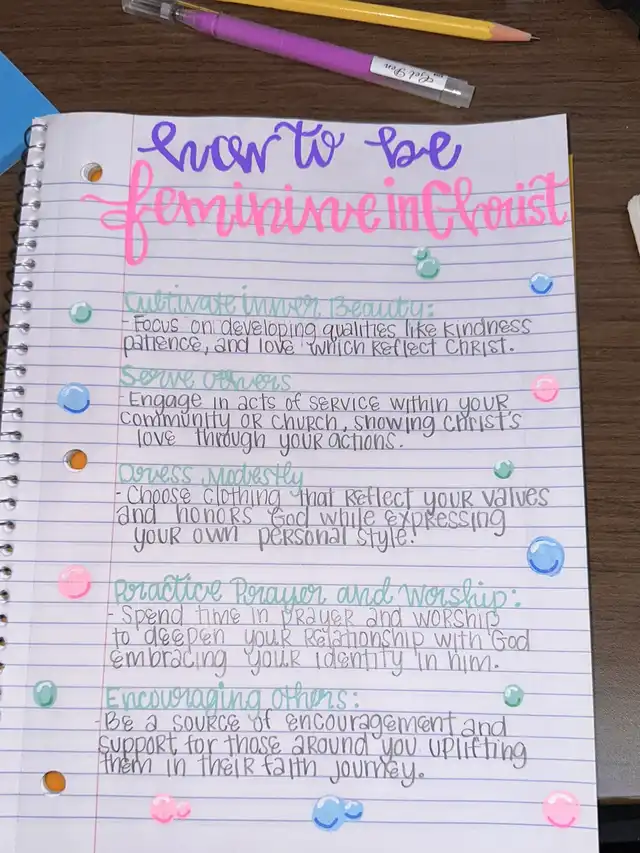 Gel Pen
how to be
feminine in Christ
Cultivate inner Beauty:
- Focus on developing qualities like kindness
patience, and love which reflect Christ.
Serve others
- Engage in acts of service within your
community or church, showing Christ's
love through your actions.
Dress Modestly
- Choose clothing that reflect your values
and honors God while expressing
your own personal style!
Practice Prayer and Worship:
- Spend time in prayer and worship
to deepen your relationship with God
embracing your identity in him.
Encouraging others:
- Be a source of encouragement and
support for those around you uplifting
them in their faith journey.